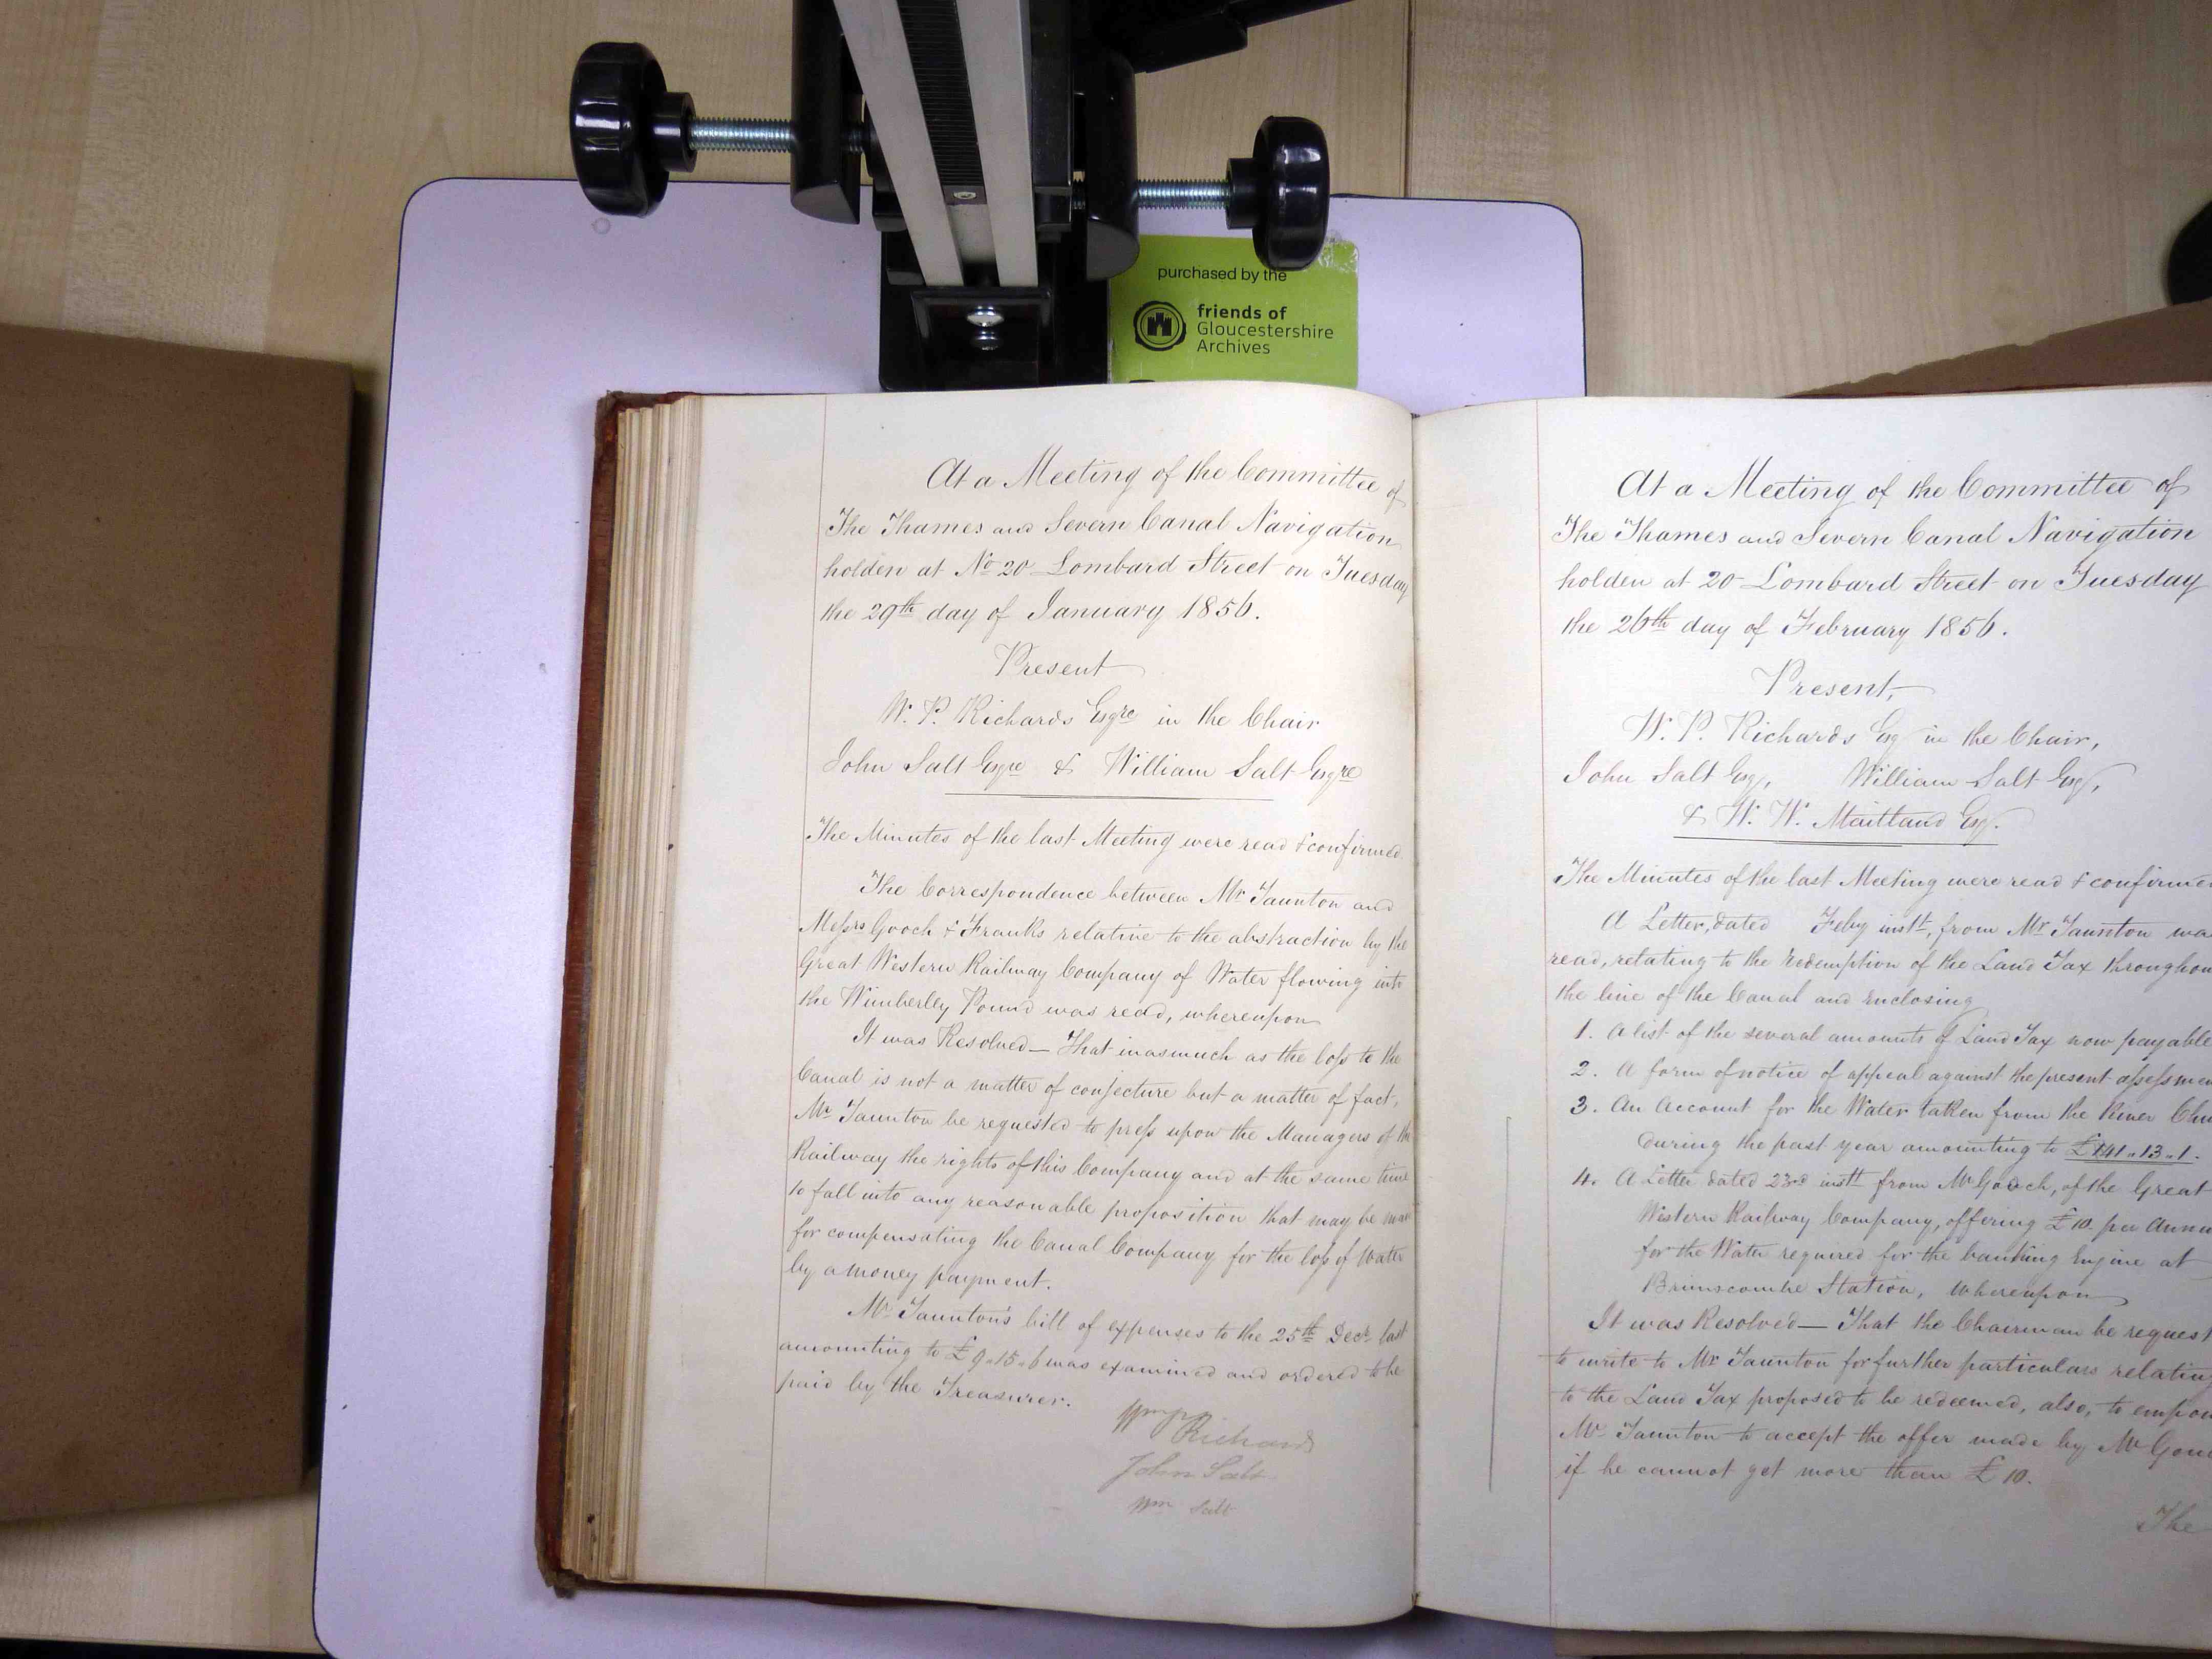 purchased by the
friends of
Gloucestershire
Archives
At a Meeting of the Committee of
The Thames and Severn Canal Navigation
holden at No 20 Lombard Street on Tuesday
the 29th day of January 1856.
Present
W. P. Richards Esqre in the Chair
John Salt Esqre & William Salt Esqre
The Minutes of the last Meeting were read & confirmed.
The Correspondence between Mr Taunton and
Messrs Gooch & Franks relative to the abstraction by the
Great Western Railway Company of Water flowing into
the Wimberley Pound was read, whereupon
It was Resolved — That inasmuch as the loss to the
Canal is not a matter of conjecture but a matter of fact,
Mr Taunton be requested to press upon the Managers of the
Railway the rights of this Company and at the same time
to fall into any reasonable proposition that may be
for compensating the Canal Company for the loss of Water
by a money payment.
Mr Taunton's bill of expenses to the 25th Decr last
amounting to £9.15.6 was examined and ordered to be
paid by the Treasurer.
Wm P Richards
John Salt
Wm Salt
At a Meeting of the Committee of
The Thames and Severn Canal Navigation
holden at 20 Lombard Street on Tuesday
the 26th day of February 1856.
Present,
W. P. Richards Esq in the Chair,
John Salt Esq, William Salt Esq,
& W. W. Maitland Esq.
The Minutes of the last Meeting were read & confirme
A Letter, dated Feby instt, from Mr Taunton wa
read, relating to the Redemption of the Land Tax throughou
the line of the Canal and Enclosing
1. A list of the several amounts of Land Tax now payable
2. A form of notice of appeal against the present assessme
3. An Account for the Water taken from the River Chu
during the past year amounting to £141.13.1.
4. A Letter dated 23rd instt from Mr Gooch, of the Great
Western Railway Company, offering £10 per Annu
for the Water required for the banking Engine at
Brimscombe Station, whereupon
It was Resolved — That the Chairman be request
to write to Mr Taunton for further particulars relating
to the Land Tax proposed to be redeemed, also, to empow
Mr Taunton to accept the offer made by Mr Gooc
if he cannot get more than £10.
The